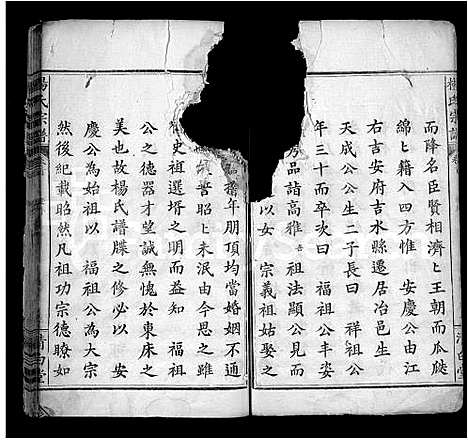 楊氏宗譜
而降名臣賢相濟濟王朝而瓜瓞
綿綿籍入四方惟 安慶公由江
右吉安府吉水縣遷居冶邑生
天成公公生二子長曰 祥祖公
年三十而卒次曰 福祖公丰姿
秀品詣高雅 祖法顯公見而
以女 宗義祖姑娶之
清白堂
年朋頂均當婚姻不通
誓昭昭未泯由今思之雖
史祖選壻之明而益見 福祖
公之德器才望誠無愧於東床之
美也故楊氏譜牒之修必以 安
慶公為始祖以 福祖公為大宗
然後紀載昭然凡祖功宗德瞭如
楊氏宗譜
清白堂